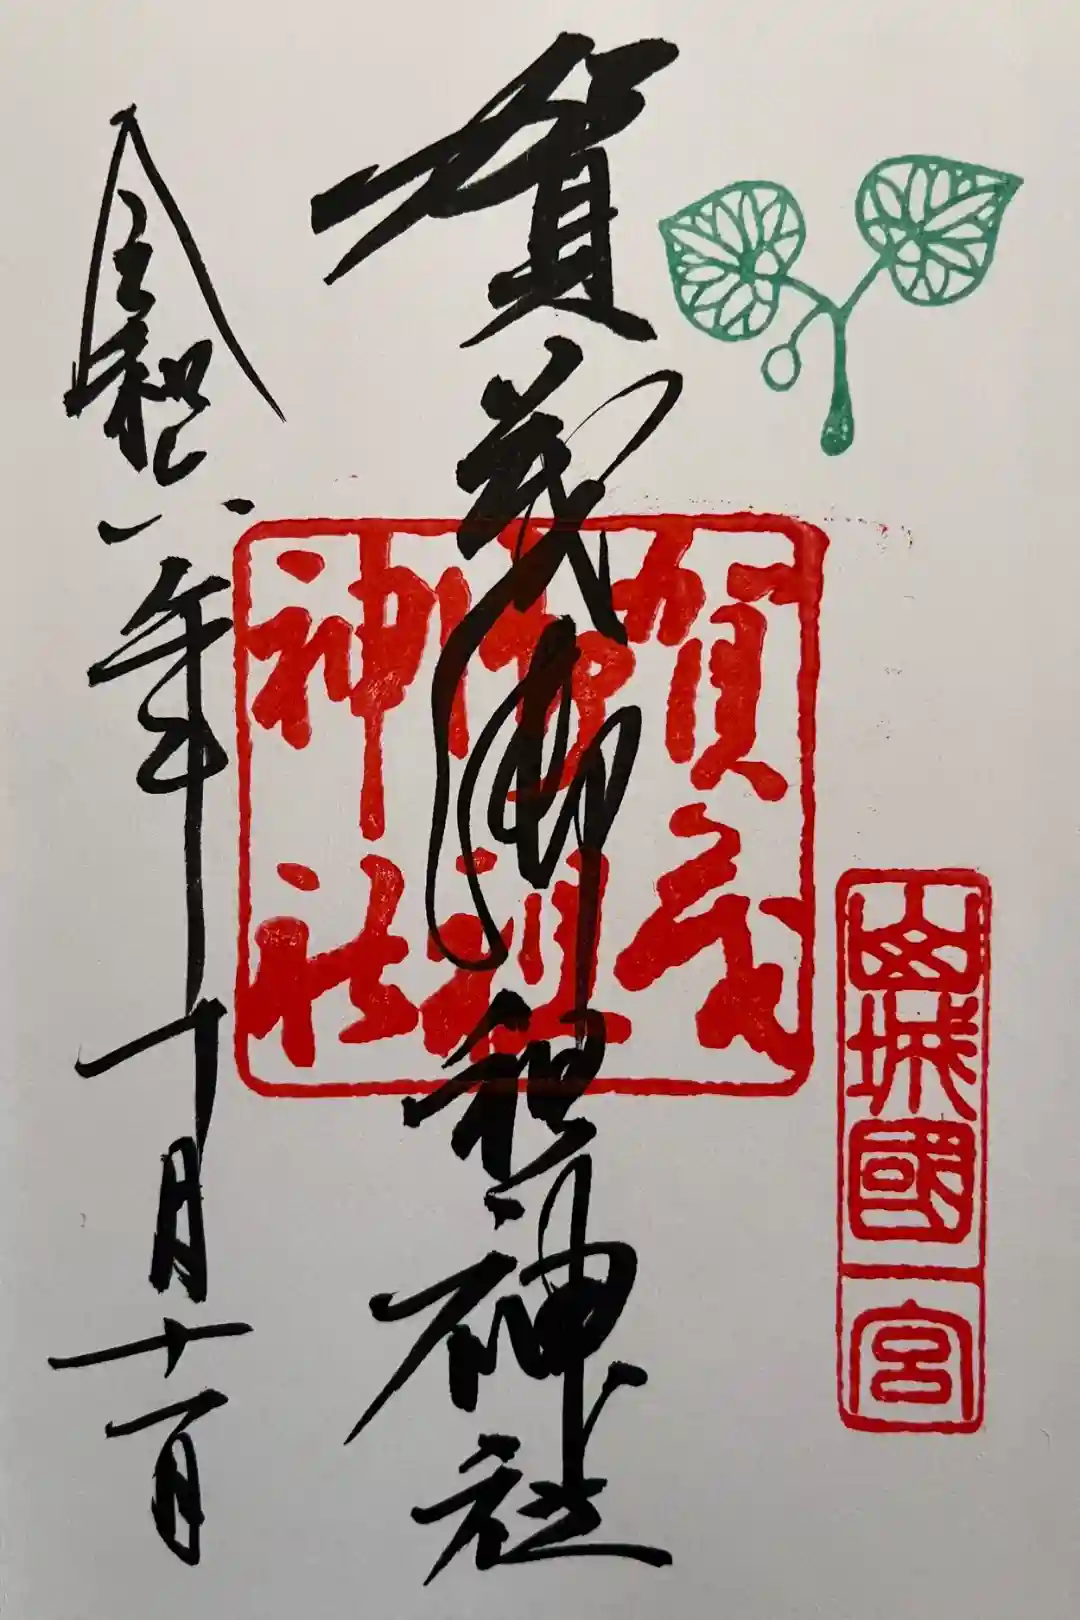 山城國一宮
賀茂御祖神社
賀茂
御祖
神社
令和六年十月十一日